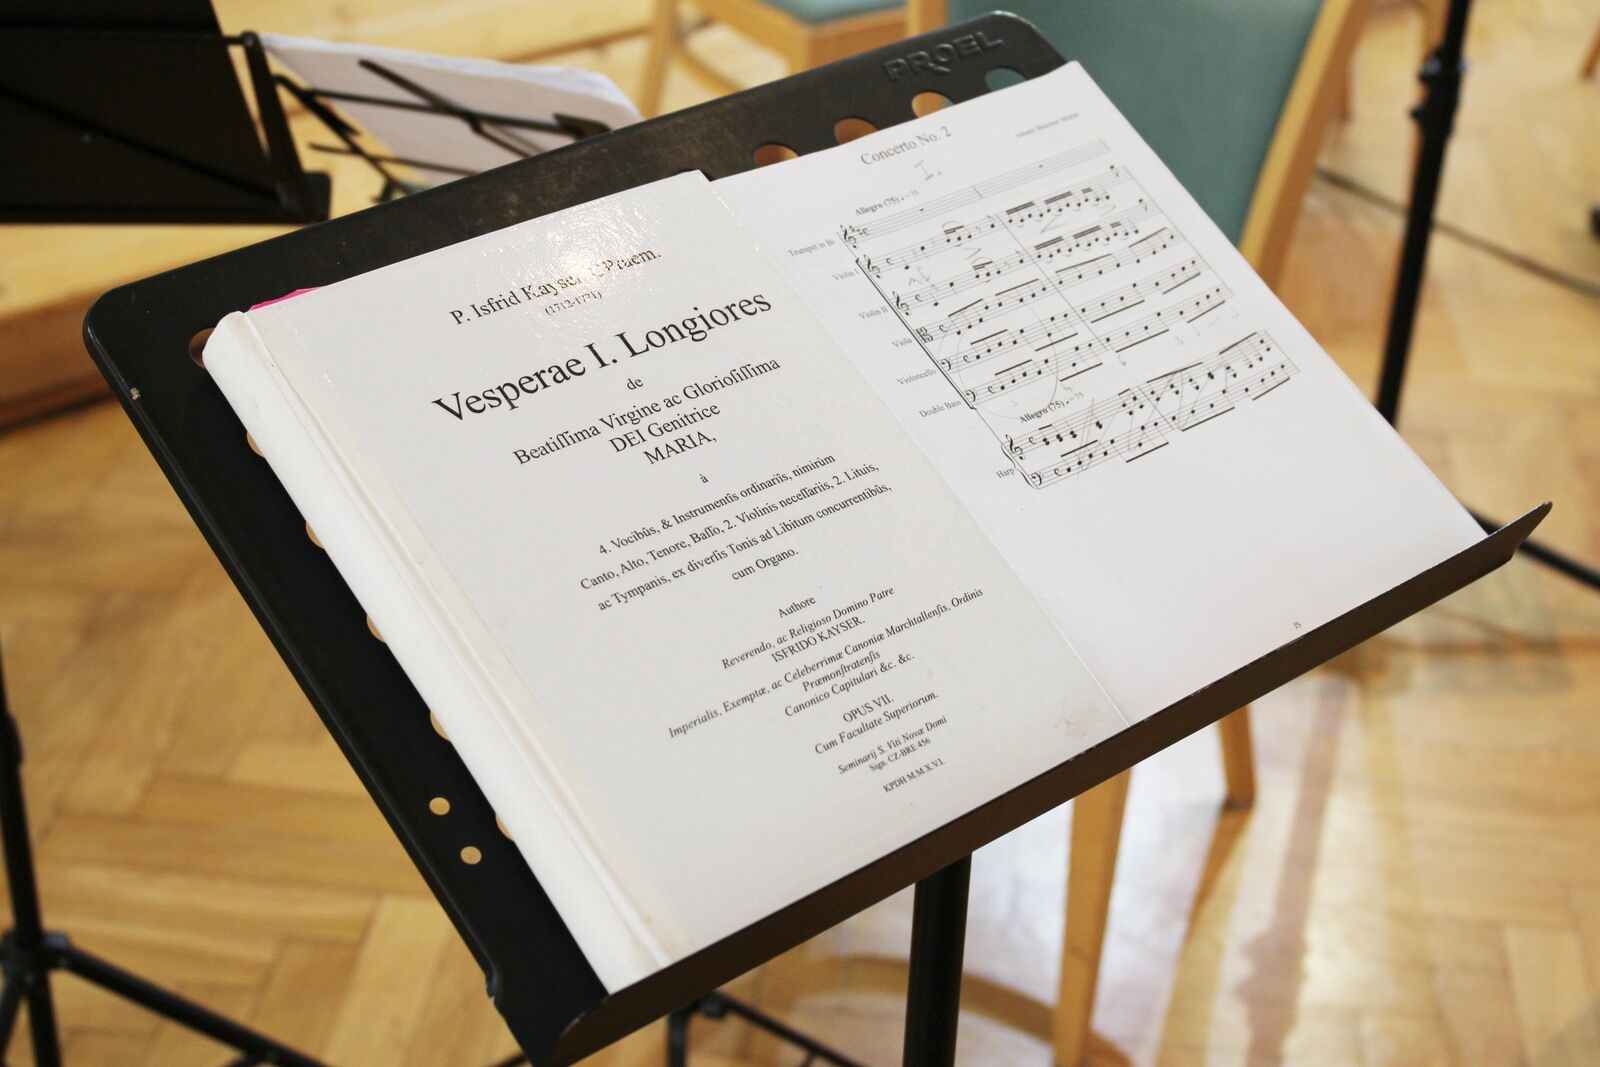 PROEL
P. Isfrid Kayser, CPraem.
(1712-1771)
Vesperae I. Longiores
de
Beatiſſima Virgine ac Glorioſiſſima
DEI Genitrice
MARIA,
à
4. Vocibûs, & Instrumentis ordinariîs, nimirùm
Canto, Alto, Tenore, Baſſo, 2. Violinis neceſſariis, 2. Lituis,
ac Tympanis, ex diverſis Tonis ad Libitum concurrentibûs,
cum Organo.
Authore
Reverendo, ac Religioso Domino Patre
ISFRIDO KAYSER.
Imperialis, Exemptæ, ac Celeberrimæ Canoniæ Marchtallenſis, Ordinis
Præmonſtratenſis
Canonico Capitulari &c. &c.
OPUS VII.
Cum Facultate Superiorum.
Seminarij S. Viti Novæ Domi
Sign. CZ-BRE 456
KPDH M.M.X.V.I.
Concerto No. 2
I.
Allegro (75) ♩ = 75
Trumpet in B♭
Violin I
Violin II
Viola
Violoncello
Double Bass
Allegro (75) ♩ = 75
Harp
15